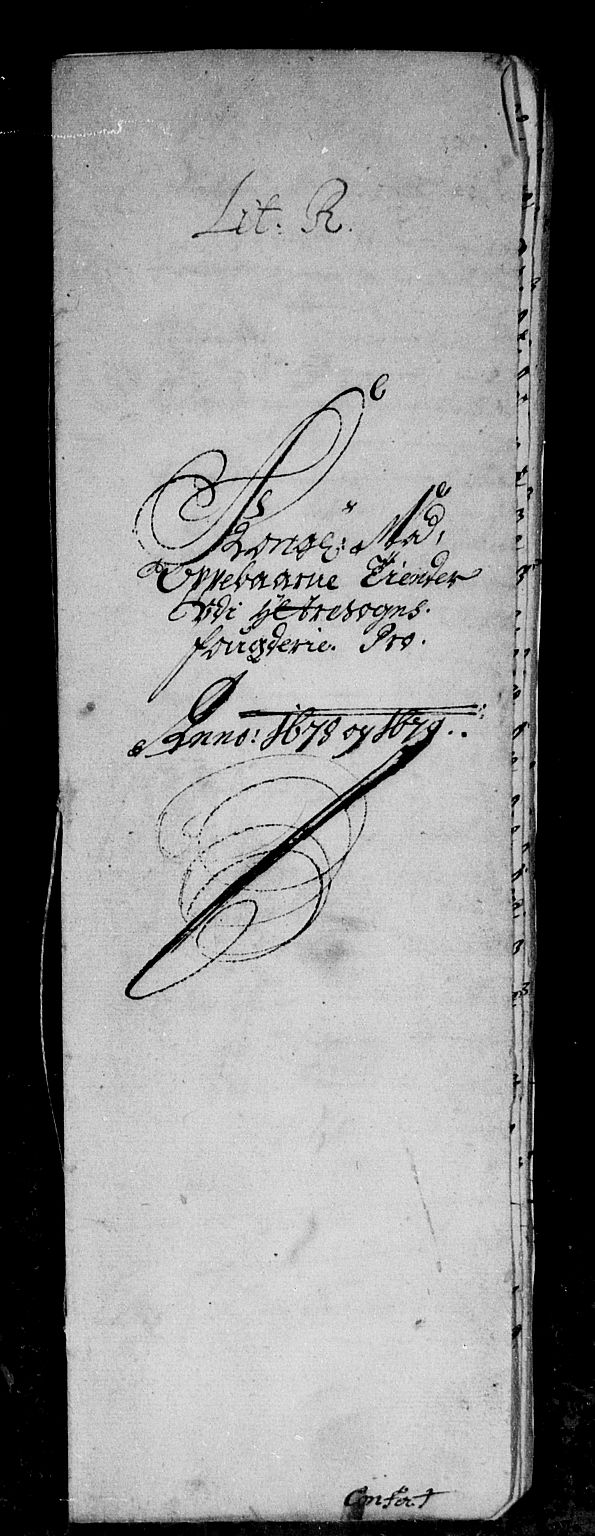 Lit. R.
Kongl: May:
Oppebaarne Tiender
Udi Hetresogns
fougderie. Pro.
Anno: 1678 og 1679..
Confert